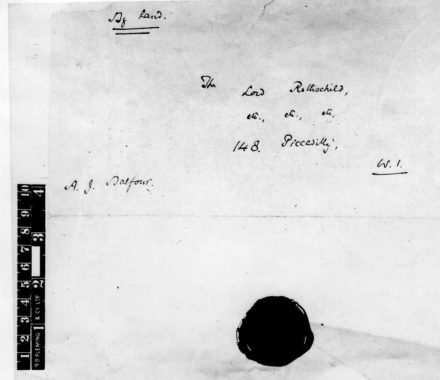 By hand.
The Lord Rothschild,
etc., etc., etc,
148. Piccadilly,
W. 1.
A. J. Balfour.
10
9
8
7
6
5
4
3
2
1
4
3
2
1
R.B. FLEMING & CO. LTD